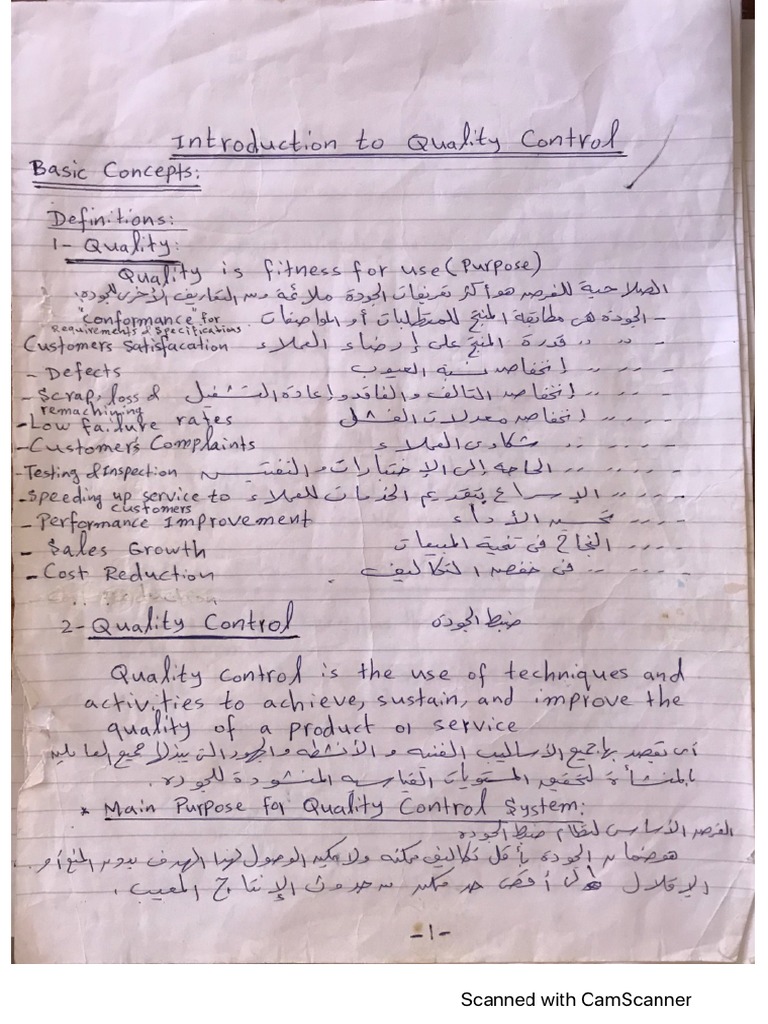 Introduction to Quality Control
Basic Concepts:
Definitions:
1- Quality:
Quality is fitness for use (Purpose)
الصلاحية للغرض هو أكثر تعريفات الجودة ملائمة ومن التعاريف الأخرى للجودة.
- الجودة هى مطابقة المنتج للمتطلبات أو المواصفات "Conformance" for
Requirements & Specifications
- " " قدرة المنتج على إرضاء العملاء Customers Satisfacation
- " " إنخفاض نسبة العيوب - Defects
- " " إنخفاض التالف والفاقد وإعادة التشغيل - Scrap, loss &
remachining
- " " إنخفاض معدلات الفشل - Low failure rates
- " " شكاوى العملاء - Customers Complaints
- " " الحاجة إلى الإختبارات والتفتيش - Testing & Inspection
- " " الإسراع بتقديم الخدمات للعملاء - Speeding up service to
customers
- " " تحسين الأداء - Performance Improvement
- " " النجاح فى تنمية المبيعات - Sales Growth
- " " فى خفض التكاليف - Cost Reduction
2- Quality Control ضبط الجودة
Quality control is the use of techniques and
activities to achieve, sustain, and improve the
quality of a product or service
أى يقصد بها جميع الأساليب الفنية والأنشطة والجهود التى يبذلها جميع العاملين
بالمنشأة لتحقيق المستويات القياسية المنشودة للجودة.
* Main Purpose for Quality Control System:
الغرض الأساسى لنظام ضبط الجودة
هو ضمان الجودة بأقل تكاليف ممكنة ولا يمكن الوصول لهذا الهدف بدون المنع أو
الإقلال إلى أقصى حد ممكن من حدوث الإنتاج المعيب.
-1-
Scanned with CamScanner